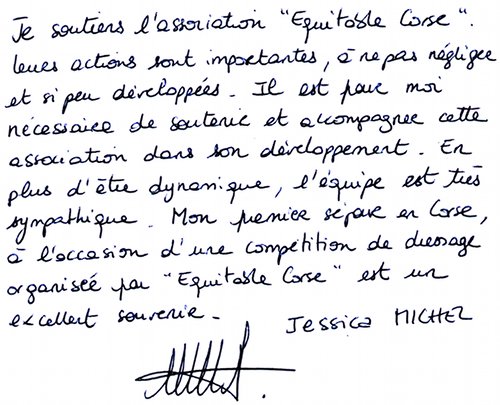 Je soutiens l'association "Equitable Corse".
leurs actions sont importantes, à ne pas négliger
et si peu développées. Il est pour moi
nécessaire de soutenir et accompagner cette
association dans son développement. En
plus d'être dynamique, l'équipe est très
sympathique. Mon premier séjour en Corse,
à l'occasion d'une compétition de dressage
organisée par "Equitable Corse" est un
excellent souvenir.
Jessica MICHEL